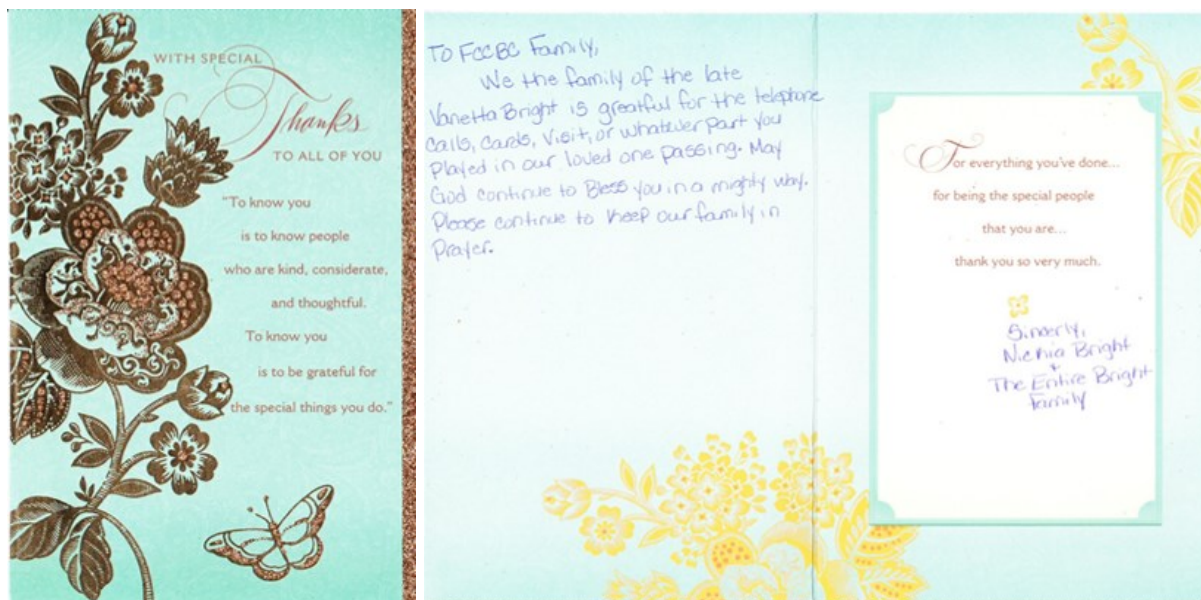 WITH SPECIAL
Thanks
TO ALL OF YOU
"To know you
is to know people
who are kind, considerate,
and thoughtful.
To know you
is to be grateful for
the special things you do."
To FCCBC Family,
We the family of the late
Vanetta Bright is greatful for the telephone
calls, cards, Visit, or whatever part you
Played in our loved one passing. May
God continue to Bless you in a mighty way.
Please continue to keep our family in
Prayer.
For everything you've done...
for being the special people
that you are...
thank you so very much.
Sincerly,
Bright
+
The Entire Bright
family